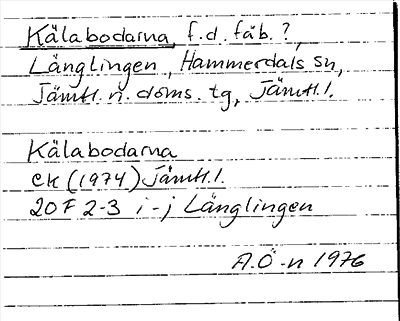 Kälabodarna, f.d. fäb.?,
Länglingen, Hammerdals sn,
Jämtl. n. doms. tg, Jämtl. l.
Kälabodarna
ek (1974) Jämtl. l.
20F 2-3 i-j Länglingen
A.Ö-n 1976